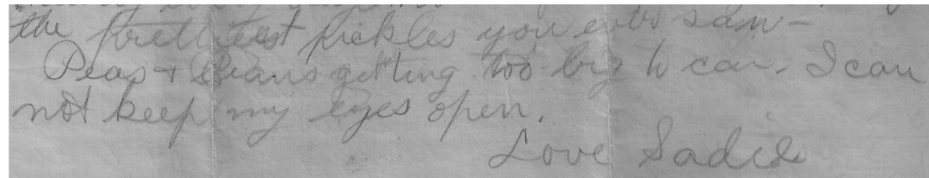 the prettiest pickles you ever saw -
Peas + Beans getting too big to can. I can
not keep my eyes open.
Love Sadie